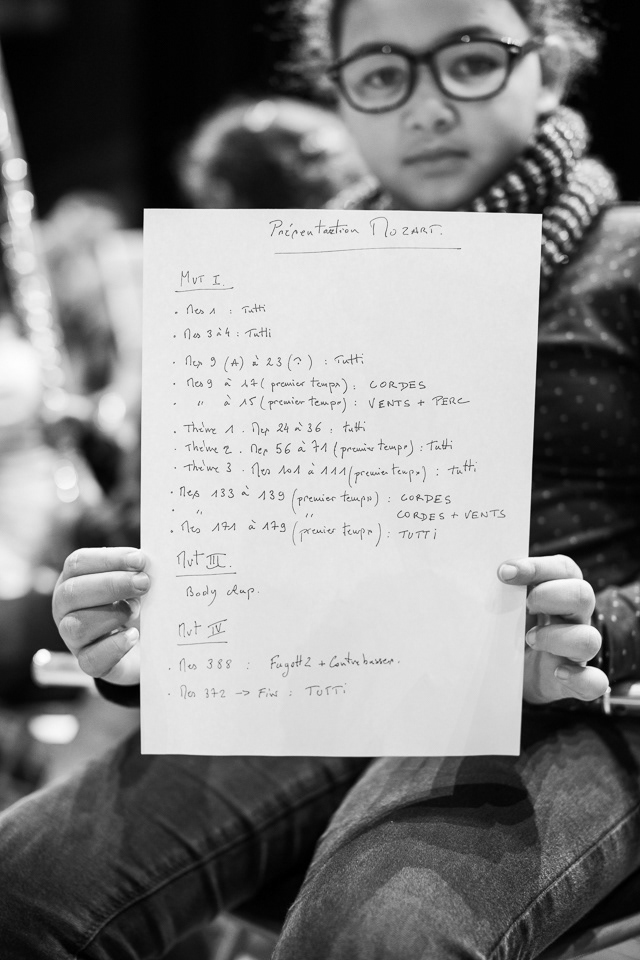 Présentation MOZART.
MVT I.
. Mes 1 : Tutti
. Mes 3 à 4 : Tutti
. Mes 9 (A) à 23 (𝄐) : Tutti
. Mes 9 à 17 (premier temps) : CORDES
. " à 15 (premier temps) : VENTS + PERC
. Thème 1 . Mes 24 à 36 : tutti
. Thème 2 . Mes 56 à 71 (premier temps) : Tutti
. Thème 3 . Mes 101 à 111 (premier temps) : tutti
. Mes 133 à 139 (premier temps) : CORDES
. " " CORDES + VENTS
. Mes 171 à 179 (premier temps) : TUTTi
MVT III.
Body clap.
MVT IV
. Mes 388 : Fagott 2 + Contrebasses.
. Mes 372 -> Fin : TUTTi